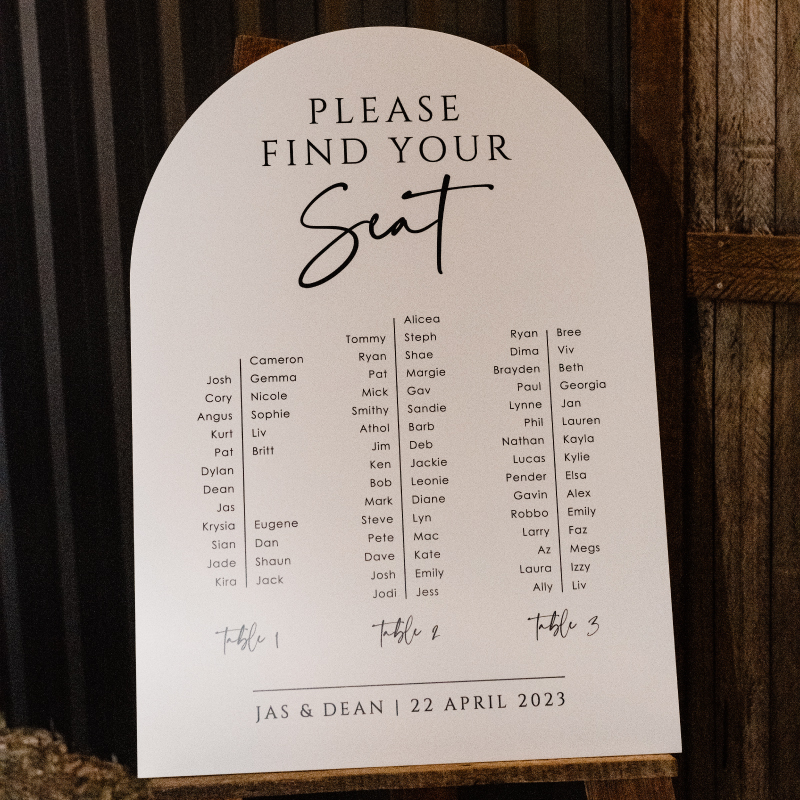 PLEASE
FIND YOUR
Seat
Cameron
Josh Gemma
Cory Nicole
Angus Sophie
Kurt Liv
Pat Britt
Dylan
Dean
Jas
Krysia Eugene
Sian Dan
Jade Shaun
Kira Jack
Table 1
Alicea
Tommy Steph
Ryan Shae
Pat Margie
Mick Gav
Smithy Sandie
Athol Barb
Jim Deb
Ken Jackie
Bob Leonie
Mark Diane
Steve Lyn
Pete Mac
Dave Kate
Josh Emily
Jodi Jess
Table 2
Ryan Bree
Dima Viv
Brayden Beth
Paul Georgia
Lynne Jan
Phil Lauren
Nathan Kayla
Lucas Kylie
Pender Elsa
Gavin Alex
Robbo Emily
Larry Faz
Az Megs
Laura Izzy
Ally Liv
Table 3
JAS & DEAN | 22 APRIL 2023